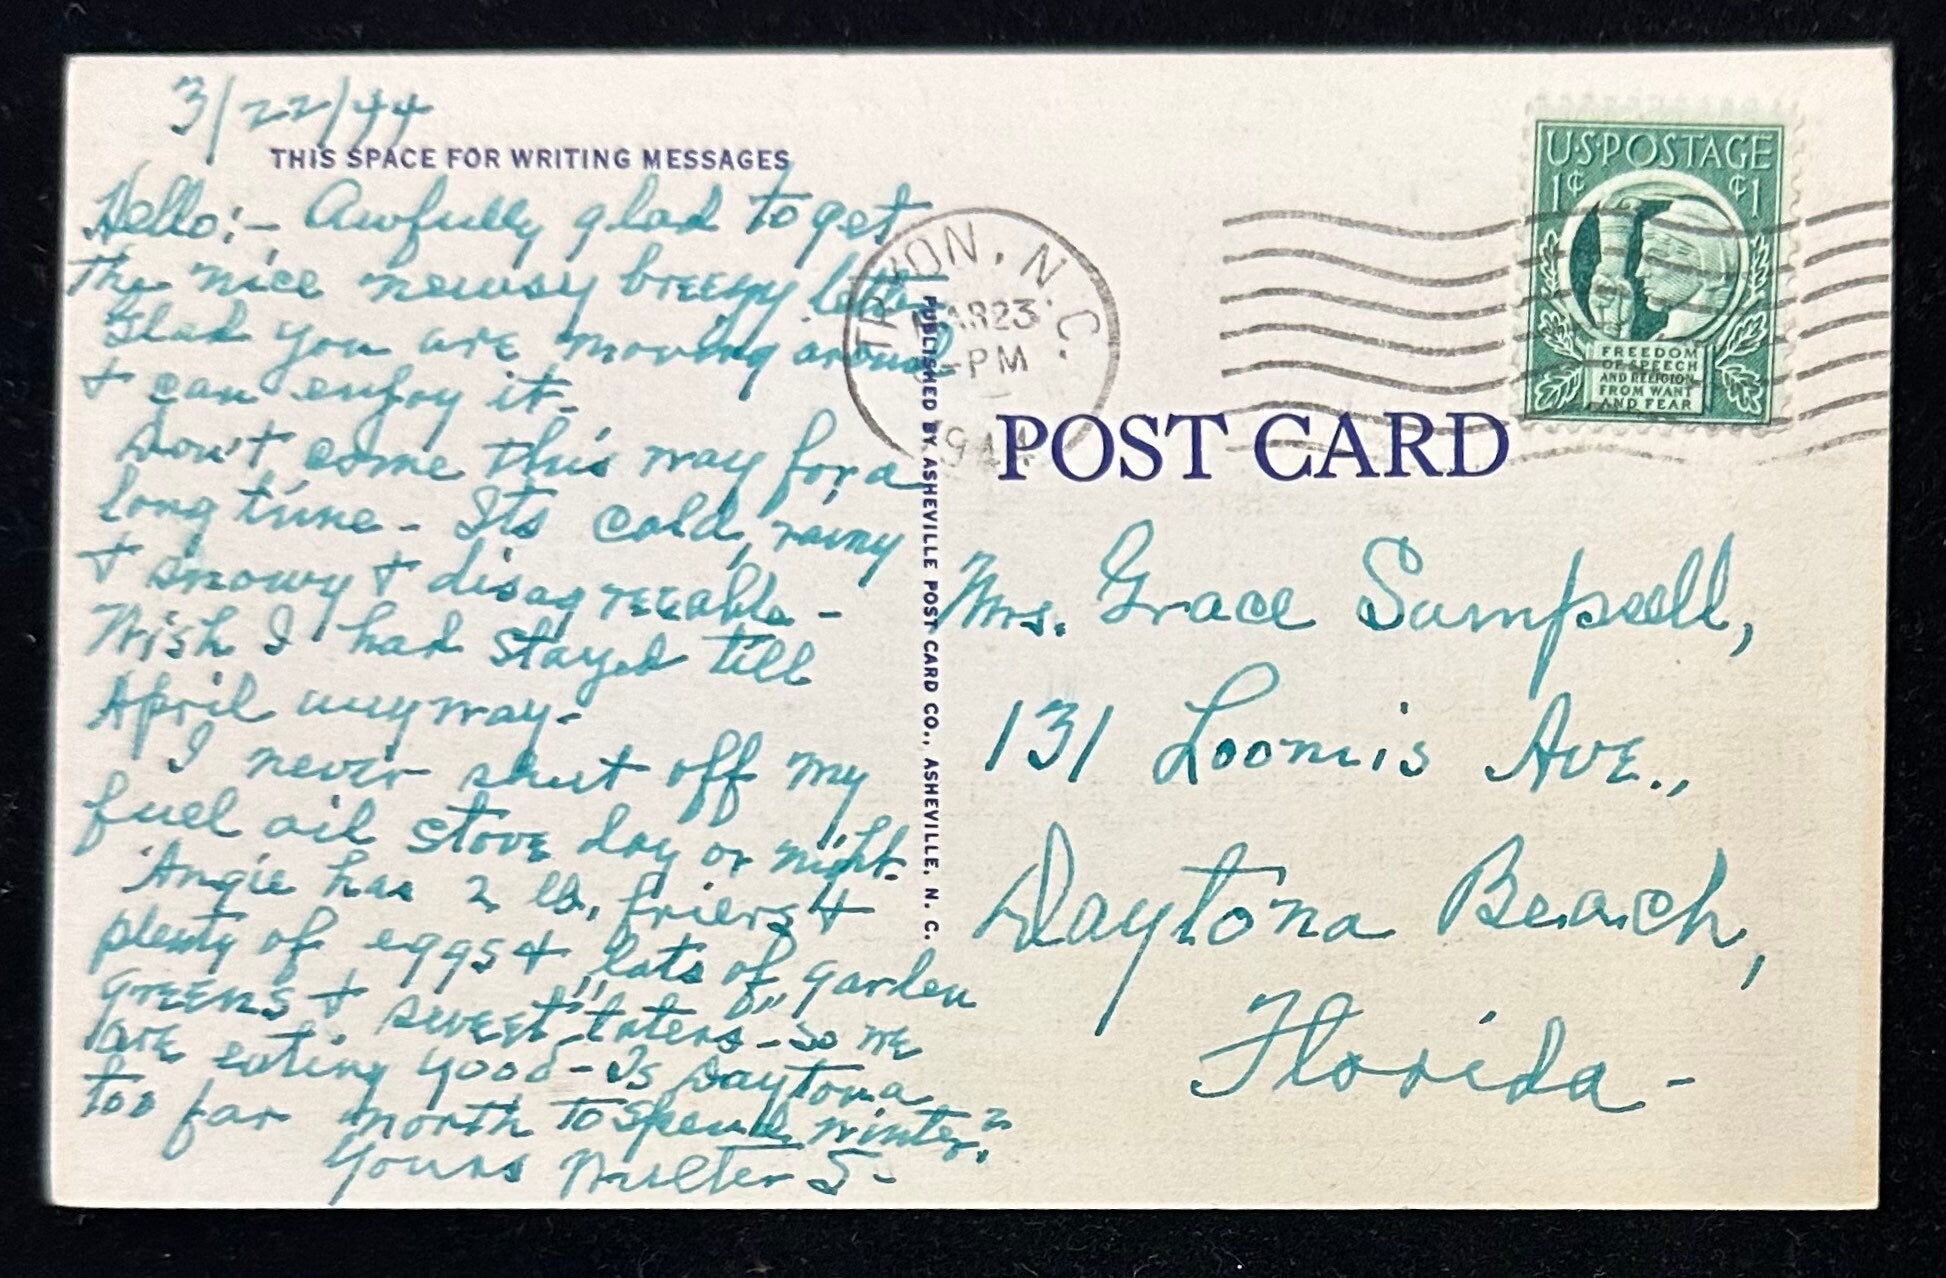 3/22/44
THIS SPACE FOR WRITING MESSAGES
Hello:- Awfully glad to get
the nice newsy breezy letter
Glad you are moving around
+ can enjoy it-
Don't come this way for a
long time - Its cold, rainy
+ snowy + disagreeable -
Wish I had stayed till
April anyway-
I never shut off my
fuel oil stove day or night.
Angie has 2 lb. friers +
plenty of eggs + lots of garden
greens + sweet "taters" - so we
are eating good - Is Daytona
too far north to spend winter?
Yours Walter S-
PUBLISHED BY ASHEVILLE POST CARD CO., ASHEVILLE, N. C.
TRYON, N.C.
MAR 23
-PM
1944
U·S·POSTAGE
1¢ ¢1
FREEDOM
OF SPEECH
AND RELIGION
FROM WANT
AND FEAR
POST CARD
Mrs. Grace Sampsell,
131 Loomis Ave.,
Daytona Beach,
Florida -